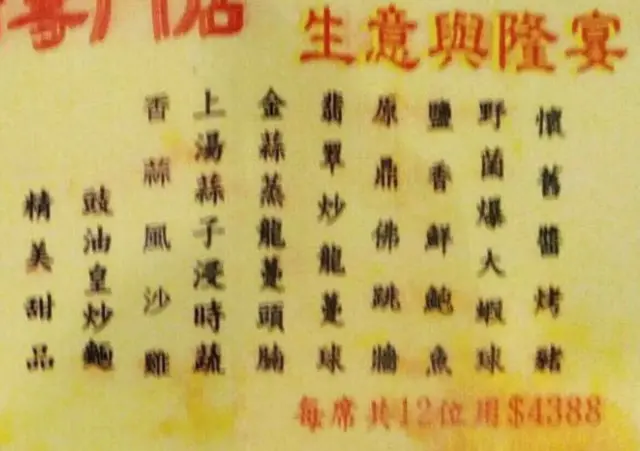 專門店
生意興隆宴
懷舊醬烤豬
野菌爆大蝦球
鹽香鮮鮑魚
原鼎佛跳牆
翡翠炒龍躉球
金蒜蒸龍躉頭腩
上湯蒜子浸時蔬
香蒜風沙雞
豉油皇炒麵
精美甜品
每席共12位用$4388